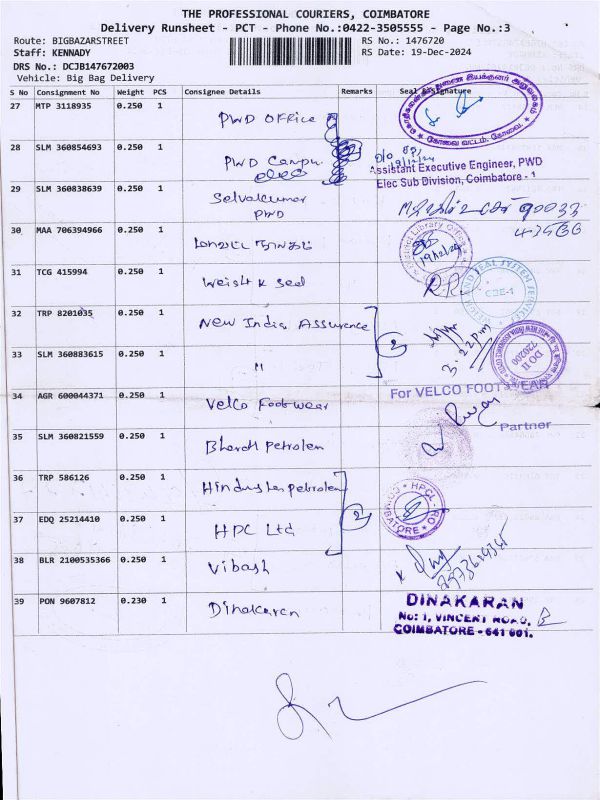 THE PROFESSIONAL COURIERS, COIMBATORE
Delivery Runsheet - PCT - Phone No.:0422-3505555 - Page No.:3
Route: BIGBAZARSTREET RS No.: 1476720
Staff: KENNADY RS Date: 19-Dec-2024
DRS No.: DCJB147672003
Vehicle: Big Bag Delivery
S No Consignment No Weight PCS Consignee Details Remarks Seal Signature
27 MTP 3118935 0.250 1 PWD Office
28 SLM 360854693 0.250 1 PWD Campu.
elec
Assistant Executive Engineer, PWD
Elec Sub Division, Coimbatore - 1
29 SLM 360838639 0.250 1 Selvakumar
PWD
30 MAA 706394966 0.250 1 மாவட்ட நூலகம்
District Library Officer
19/12/24
31 TCG 415994 0.250 1 Weight & Seal
CBE-1
32 TRP 8201035 0.250 1 New India Assurance
2
3.22 pm
33 SLM 360883615 0.250 1 "
DO II
720200
34 AGR 600044371 0.250 1 Velco Footwear
For VELCO FOOTWEAR
Partner
35 SLM 360821559 0.250 1 Bharath Petrolem
36 TRP 586126 0.250 1 Hindustan petrolem
2
HPCL - RO
COIMBATORE
37 EDQ 25214410 0.250 1 HPC Ltd
38 BLR 2100535366 0.250 1 Vibash
39 PON 9607812 0.230 1 Dinakaran
DINAKARAN
No: 1, VINCENT ROAD,
COIMBATORE - 641 001.